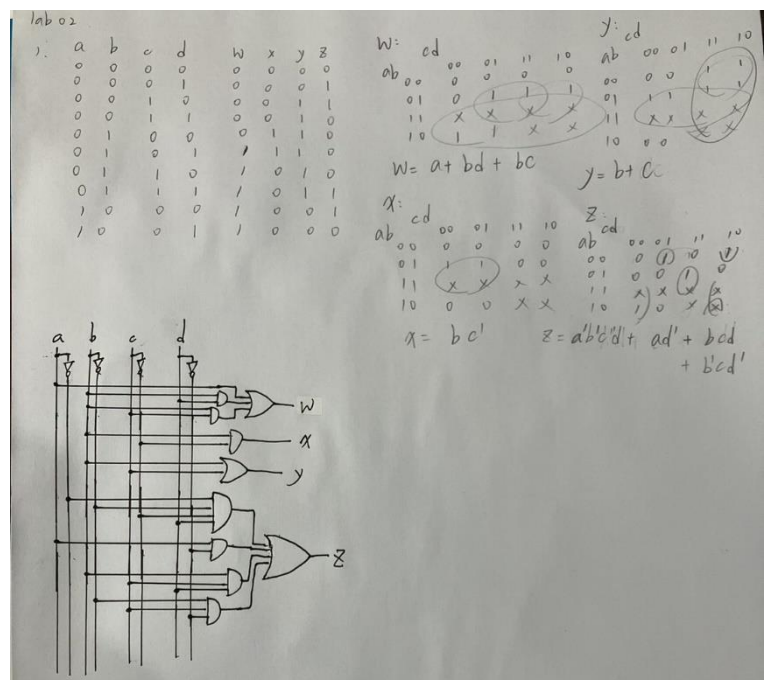 lab 02
1.
a b c d w x y z
0 0 0 0 0 0 0 0
0 0 0 1 0 0 0 1
0 0 1 0 0 0 1 1
0 0 1 1 0 0 1 0
0 1 0 0 0 1 1 0
0 1 0 1 1 1 1 0
0 1 1 0 1 0 1 0
0 1 1 1 1 0 1 1
1 0 0 0 1 0 0 1
1 0 0 1 1 0 0 0
W:
cd
ab 00 01 11 10
00 0 0 0 0
01 0 1 1 1
11 x x x x
10 1 1 x x
W = a + bd + bc
y:
cd
ab 00 01 11 10
00 0 0 1 1
01 1 1 1 1
11 x x x x
10 0 0 x x
y = b + c
x:
cd
ab 00 01 11 10
00 0 0 0 0
01 1 1 0 0
11 x x x x
10 0 0 x x
x = bc'
z:
cd
ab 00 01 11 10
00 0 1 0 1
01 0 0 1 0
11 x x x x
10 1 0 x x
z = a'b'c'd + ad' + bcd
+ b'cd'
a b c d
W
x
y
z